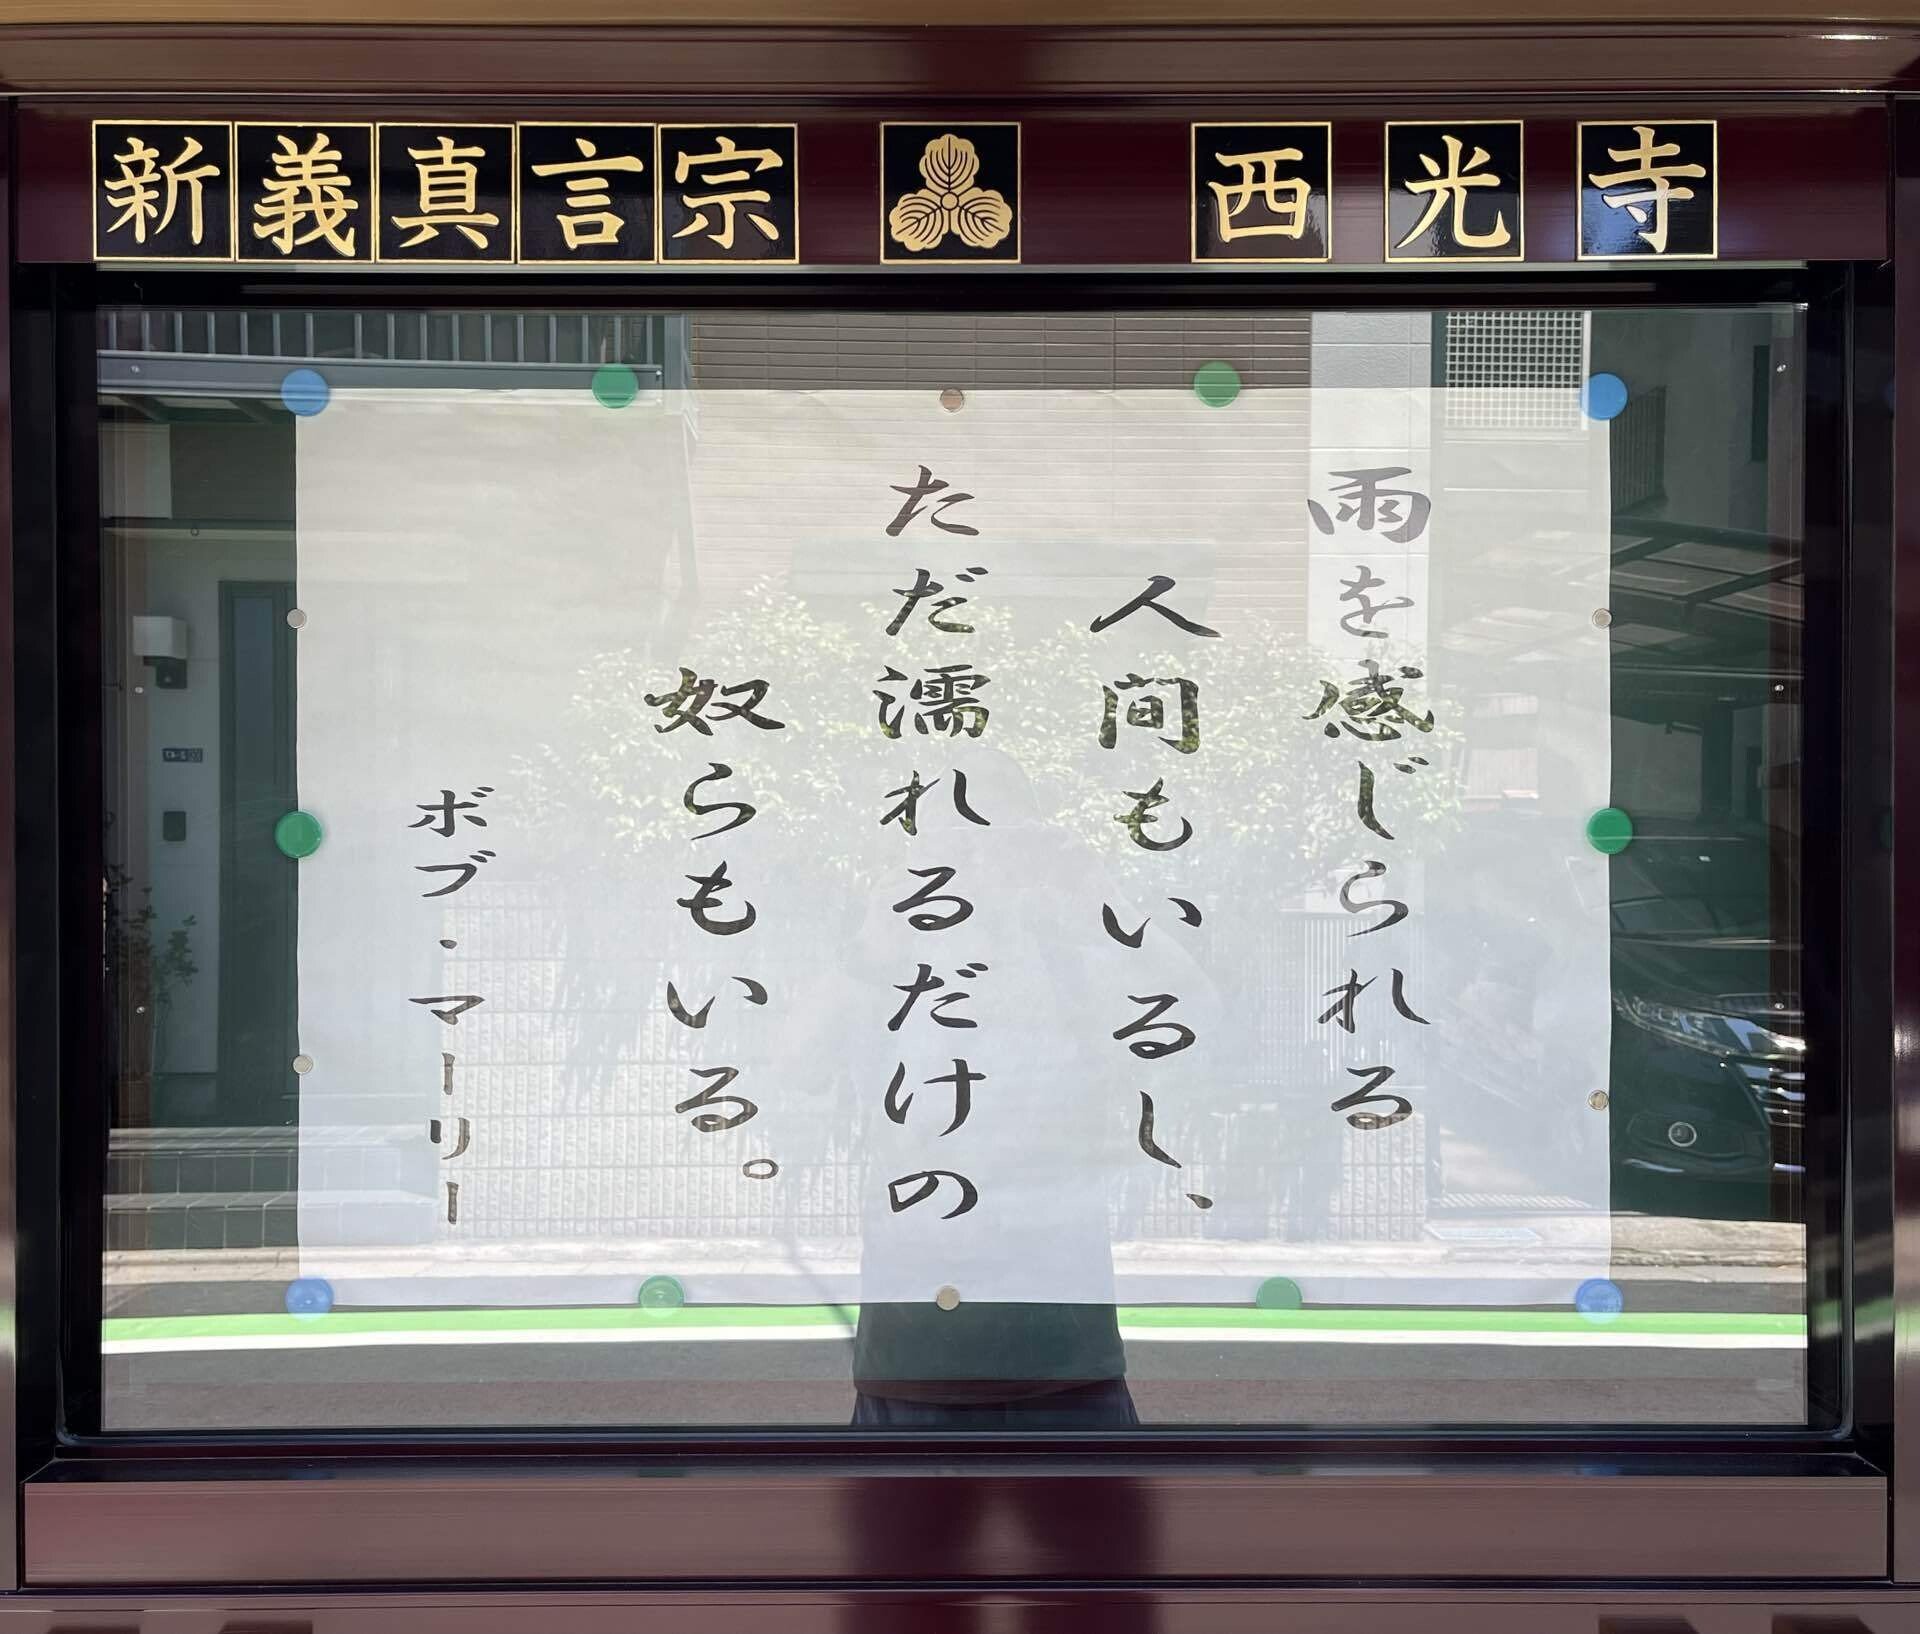 新義真言宗 西光寺
雨を感じられる
人間もいるし、
ただ濡れるだけの
奴らもいる。
ボブ・マーリー